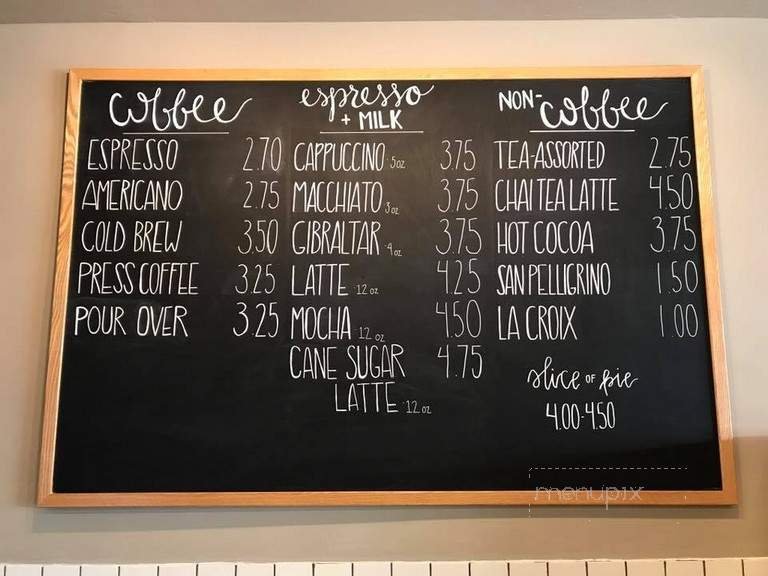 coffee
ESPRESSO 2.70
AMERICANO 2.75
COLD BREW 3.50
PRESS COFFEE 3.25
POUR OVER 3.25
espresso
+ MILK
CAPPUCCINO 5oz 3.75
MACCHIATO 3oz 3.75
GIBRALTAR 4oz 3.75
LATTE 12oz 4.25
MOCHA 12oz 4.50
CANE SUGAR 4.75
LATTE 12oz
NON-coffee
TEA-ASSORTED 2.75
CHAI TEA LATTE 4.50
HOT COCOA 3.75
SAN PELLIGRINO 1.50
LA CROIX 1.00
slice OF pie
4.00-4.50
menupix